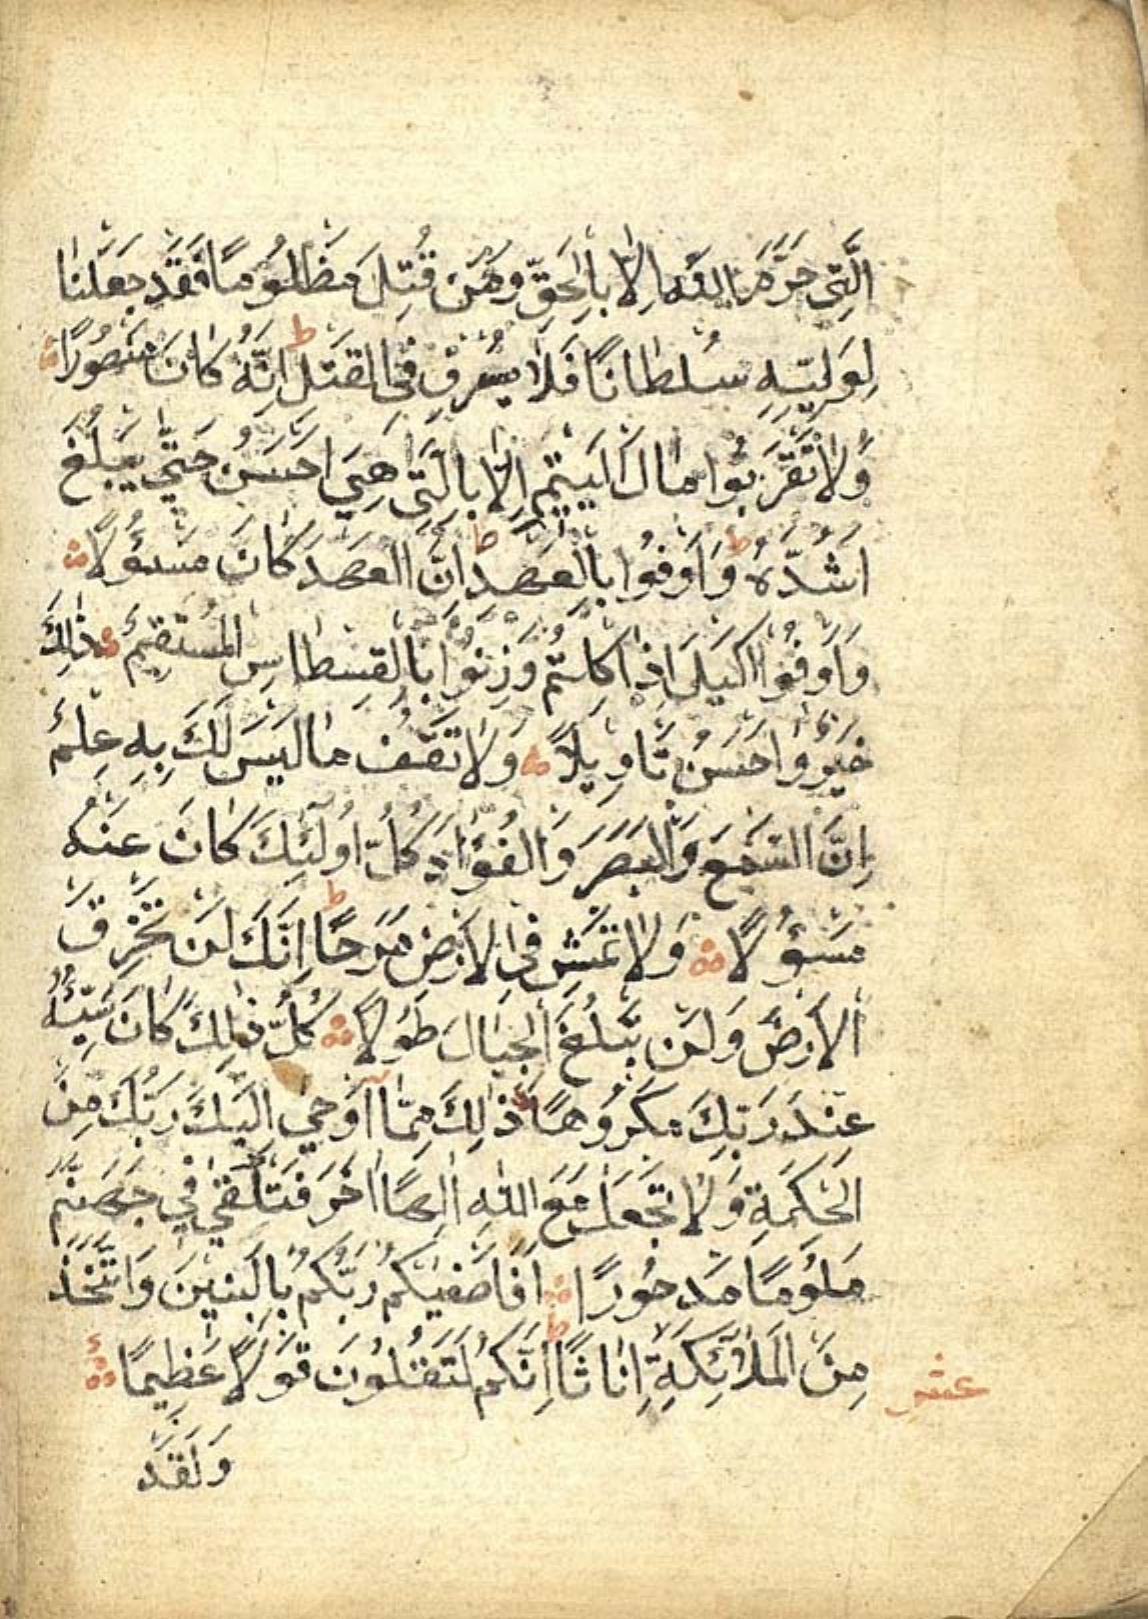 الَّتِي حَرَّمَ اللّٰهُ اِلَّا بِالْحَقِّ وَمَنْ قُتِلَ مَظْلُومًا فَقَدْ جَعَلْنَا
لِوَلِيِّهِ سُلْطَانًا فَلَا يُسْرِفْ فِي الْقَتْلِ ط اِنَّهُ كَانَ مَنْصُورًا
وَلَا تَقْرَبُوا مَالَ الْيَتِيمِ اِلَّا بِالَّتِي هِيَ اَحْسَنُ حَتَّى يَبْلُغَ
اَشُدَّهُ ط وَاَوْفُوا بِالْعَهْدِ ط اِنَّ الْعَهْدَ كَانَ مَسْؤُلًا
وَاَوْفُوا الْكَيْلَ اِذَا كِلْتُمْ وَزِنُوا بِالْقِسْطَاسِ الْمُسْتَقِيمِ ذٰلِكَ
خَيْرٌ وَاَحْسَنُ تَاْوِيلًا وَلَا تَقْفُ مَا لَيْسَ لَكَ بِهِ عِلْمٌ
اِنَّ السَّمْعَ وَالْبَصَرَ وَالْفُؤَادَ كُلُّ اُولٰئِكَ كَانَ عَنْهُ
مَسْؤُلًا وَلَا تَمْشِ فِي الْاَرْضِ مَرَحًا ط اِنَّكَ لَنْ تَخْرِقَ
الْاَرْضَ وَلَنْ تَبْلُغَ الْجِبَالَ طُولًا كُلُّ ذٰلِكَ كَانَ سَيِّئُهُ
عِنْدَ رَبِّكَ مَكْرُوهًا ذٰلِكَ مِمَّا اَوْحٰى اِلَيْكَ رَبُّكَ مِنَ
الْحِكْمَةِ وَلَا تَجْعَلْ مَعَ اللّٰهِ اِلٰهًا اٰخَرَ فَتُلْقٰى فِي جَهَنَّمَ
مَلُومًا مَدْحُورًا اَفَاَصْفٰيكُمْ رَبُّكُمْ بِالْبَنِينَ وَاتَّخَذَ
مِنَ الْمَلٰئِكَةِ اِنَاثًا ط اِنَّكُمْ لَتَقُولُونَ قَوْلًا عَظِيمًا
عشر
وَلَقَدْ